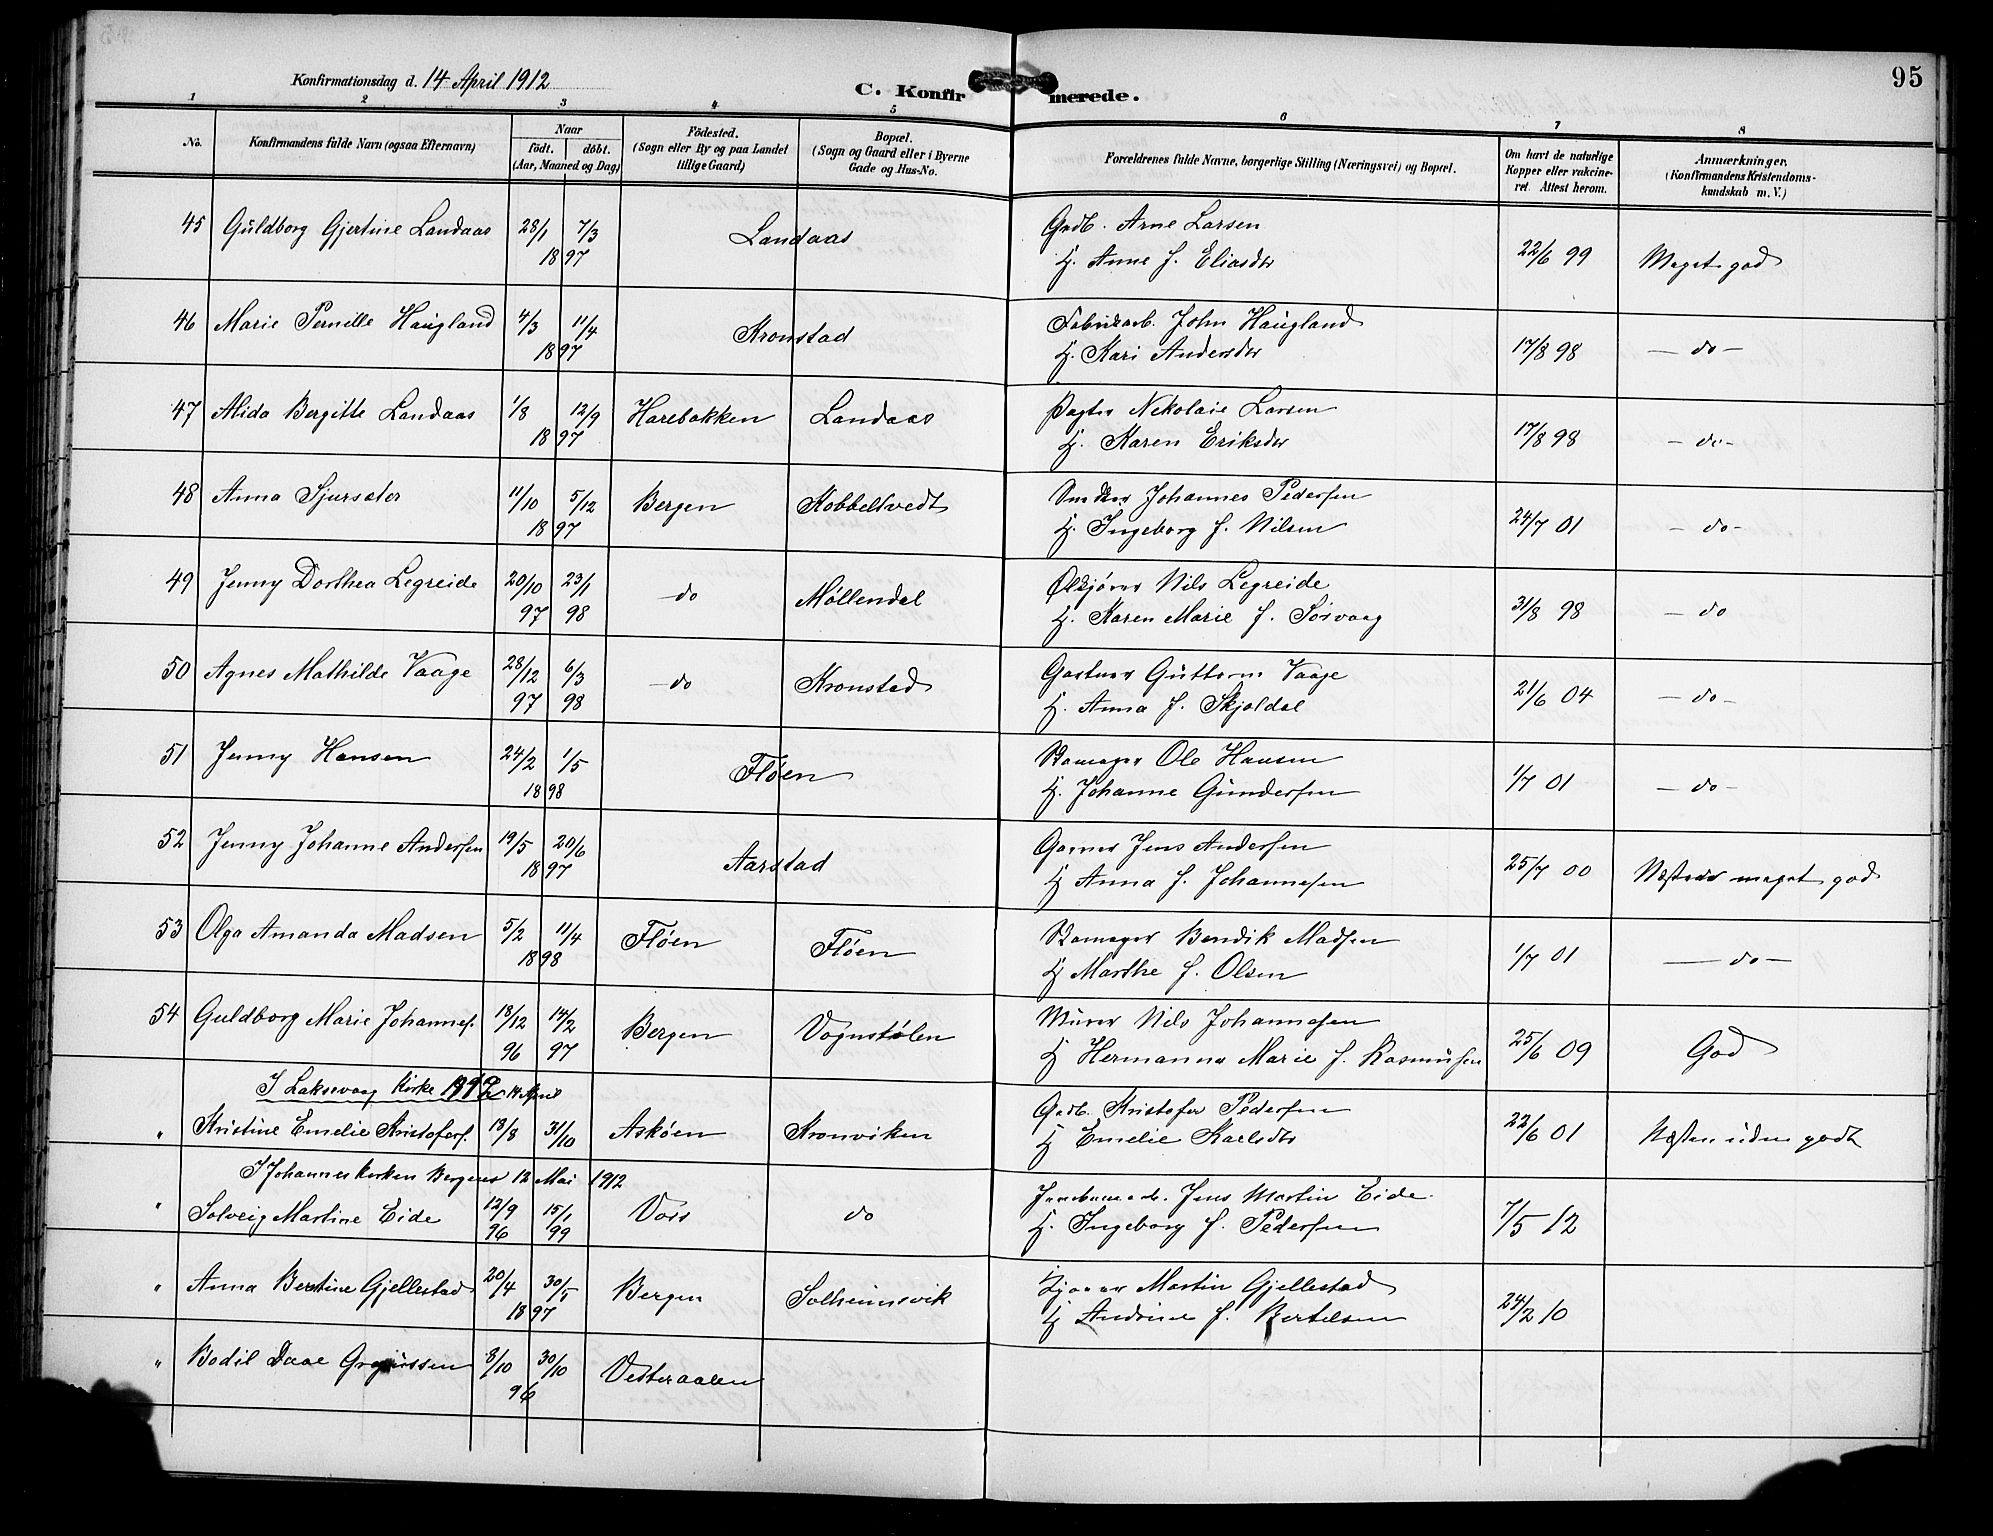 95
Konfirmationsdag d. 14 April 1912
C. Konfirmerede.
1 2 3 4 5 6 7 8
No. Konfirmandens fulde Navn (ogsaa Efternavn) Naar födt. döbt. (Aar, Maaned og Dag) Födested. (Sogn eller By og paa Landet tillige Gaard) Bopæl. (Sogn og Gaard eller i Byerne Gade og Hus-No. Forældrenes fulde Navne, borgerlige Stilling (Næringsvei) og Bopæl. Om havt de naturlige Kopper eller vakcineret. Attest herom. Anmærkninger. (Konfirmandens Kristendomskundskab m. V.)
45 Guldborg Gjertine Landaas 28/1 7/3 1897 Landaas Gadb. Arne Larsen
H. Anne f. Eliasdtr 22/6 99 Meget god
46 Marie Pernille Haugland 4/3 11/4 1897 Kronstad Fabrikarb. John Haugland
H. Kari Andersdtr 17/8 98 - do -
47 Alida Bergitte Landaas 1/8 12/9 1897 Harebakken Landaas Pagter Nikolaie Larsen
H. Karen Eriksdtr 17/8 98 - do -
48 Anna Sjursæter 11/10 5/12 1897 Bergen Kobbeltvedt Snedker Johannes Pedersen
H. Ingeborg f. Nilsen 24/7 01 - do -
49 Jenny Dorthea Legreide 20/10 97 23/1 98 - do Møllendal Ølkjører Nils Legreide
H. Karen Marie f. Sørvaag 31/8 98 - do
50 Agnes Mathilde Vaage 28/12 97 6/3 98 - do Kronstad Gartner Guttorm Vaage
H. Anna f. Skjoldal 21/6 04 - do -
51 Jenny Hansen 24/2 1/5 1898 Fløen Skomager Ole Hansen
H. Johanne Gundersen 1/7 01 - do -
52 Jenny Johanne Andersen 19/5 20/6 1897 Aarstad Garver Jens Andersen
H Anna f. Johannesen 25/7 00 Næsten meget god
53 Olga Amanda Madsen 5/2 11/4 1898 Fløen Fløen Skomager Bendik Madsen
H Marthe f. Olsen 1/7 01 - do -
54 Guldborg Marie Johannes. 18/12 96 14/2 97 Bergen Vognstølen Murer Nils Johannesen
H Hermanna Marie f. Rasmussen 25/6 09 God
I Laksevaag Kirke 1912 14 April
" Kristine Emelie Kristofers. 18/8 31/10 Askøen Kronviken Gadb. Kristofer Pedersen
H Emelie Karlsdtr 22/6 01 Næsten uden godt
I Johanneskirken Bergen 12 Mai 1912
" Solveig Martine Eide 12/9 96 15/1 99 Voss do Jens Martin Eide
H. Ingeborg f. Pedersen 7/5 12
" Anna Bertine Gjellestad 20/4 30/5 1897 Bergen Solheimsvik Martin Gjellestad
H Andrine f. Bertelsen 24/2 10
" Bodil Daae 8/10 30/10 96 Vesteraalen